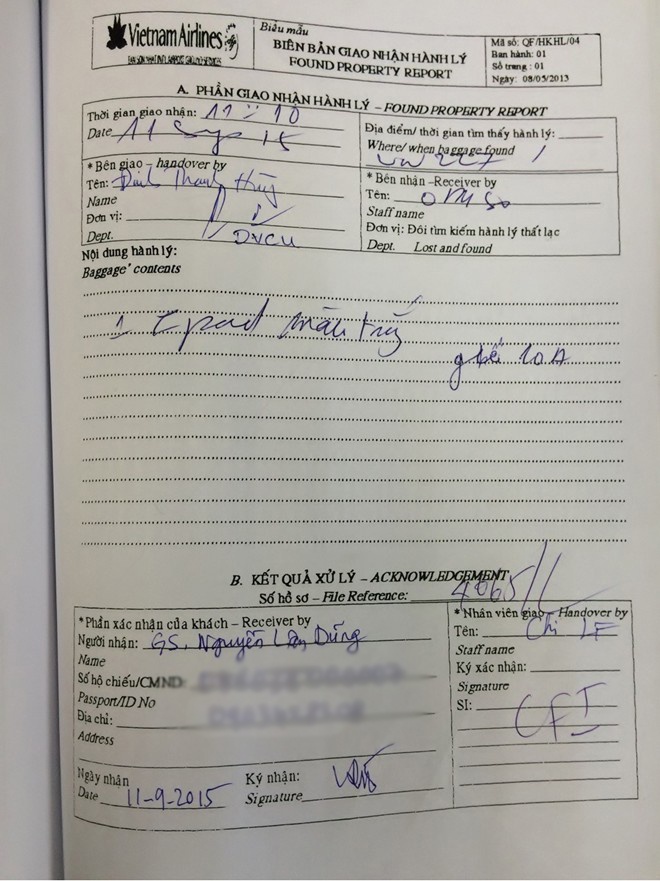 Vietnam Airlines
Biểu mẫu
BIÊN BẢN GIAO NHẬN HÀNH LÝ
FOUND PROPERTY REPORT
Mã số: QF/HKHL/04
Ban hành: 01
Số trang: 01
Ngày: 08/05/2013
A. PHẦN GIAO NHẬN HÀNH LÝ – FOUND PROPERTY REPORT
Thời gian giao nhận: 11:10
Date 11 Sep 15
Địa điểm/ thời gian tìm thấy hành lý:
Where/ when baggage found
* Bên giao – handover by
Tên: Đinh Thanh Hùng
Name
Đơn vị:
Dept. DVCU
* Bên nhận –Receiver by
Tên:
Staff name
Đơn vị: Đôi tìm kiếm hành lý thất lạc
Dept. Lost and found
Nội dung hành lý:
Baggage' contents
1 Ipad màu trắng
ghế 10A
B. KẾT QUẢ XỬ LÝ – ACKNOWLEDGEMENT
Số hồ sơ – File Reference: 4065/
*Phần xác nhận của khách – Receiver by
Người nhận: GS. Nguyễn Lân Dũng
Name
Số hộ chiếu/CMND:
Passport/ID No
Địa chỉ:
Address
Ngày nhận
Date 11-9-2015
Ký nhận:
Signature
* Nhân viên giao – Handover by
Tên: Chi LF
Staff name
Ký xác nhận:
Signature
SI: